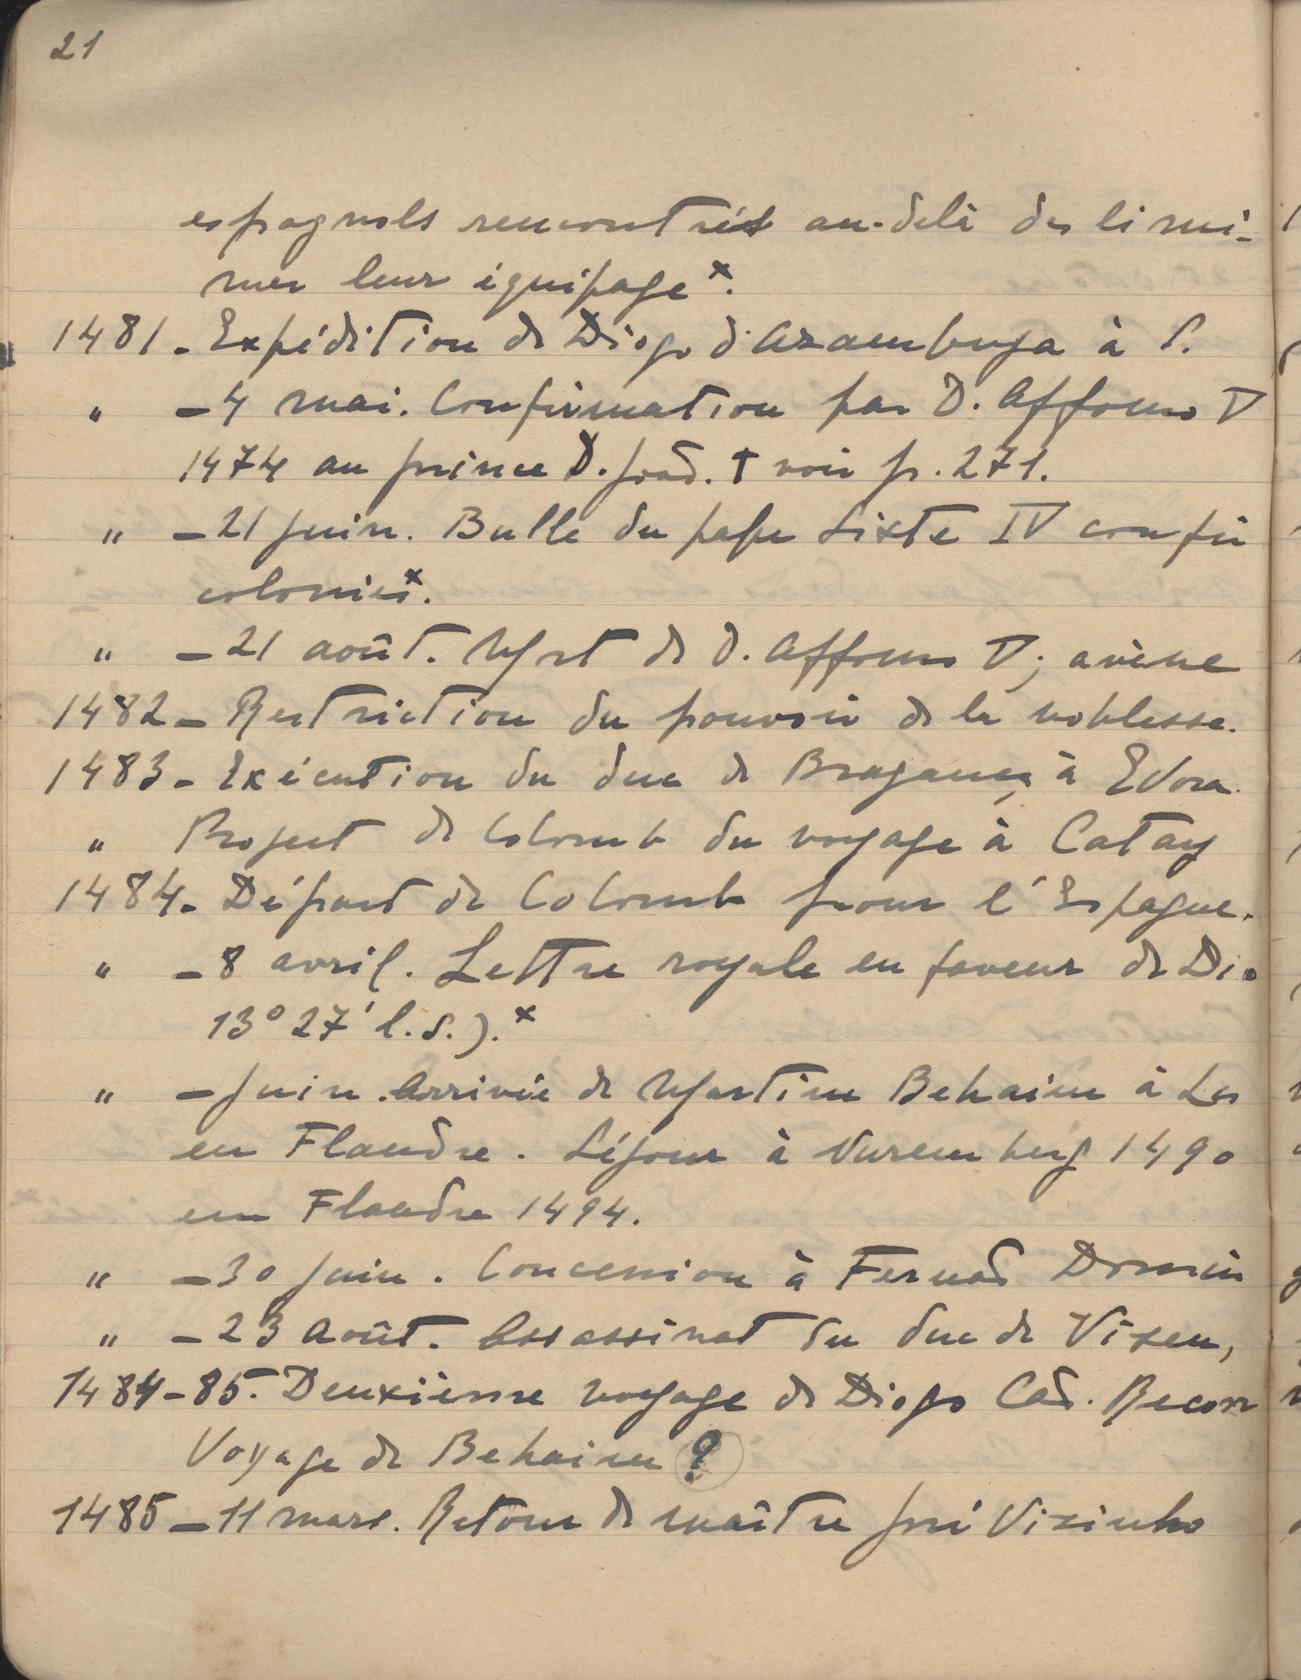 21
espagnols rencontrés au-delà des limi-
mer leur équipage x.
1481 - Expédition de Diogo d'Azambuja à S.
" - 4 mai. Confirmation par D. Affonso V
1474 au prince D. Joaõ. † voir p. 271.
" - 21 juin. Bulle du pape Sixte IV confir
colonies x.
" - 21 août. Mort de D. Affonso V; avène
1482 - Restriction du pouvoir de la noblesse.
1483 - Exécution du duc de Bragança à Evora.
" Projet de Colomb du voyage à Catay
1484 - Départ de Colomb pour l'Espagne.
" - 8 avril. Lettre royale en faveur de Dio
13° 27' l. S.). x
" - Juin. Arrivée de Martim Behaim à Lis
en Flandre. Séjour à Nuremberg 1490
en Flandre 1494.
" - 30 juin. Concession à Fernaõ Domin
" - 23 août. Assassinat du duc de Viseu,
1484-85. Deuxième voyage de Diogo Caõ. Reconn
Voyage de Behaim ?
1485 - 11 mars. Retour de maître José Vizinho